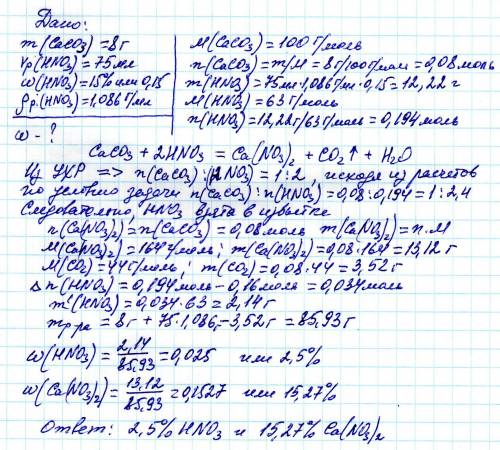 Дано:
m(CaCO₃)=8г
Vp(HNO₃)=75мл
ω(HNO₃)=15% или 0,15
ρp(HNO₃)=1,086г/мл
ω-?
M(CaCO₃)=100г/моль
n(CaCO₃)=m/M=8г/100г/моль=0,08моль
m(HNO₃)=75мл·1,086г/мл·0,15=12,22г
M(HNO₃)=63г/моль
n(HNO₃)=12,22г/63г/моль=0,194моль
CaCO₃ + 2HNO₃ = Ca(NO₃)₂ + CO₂↑ + H₂O
Из УХР => n(CaCO₃):(HNO₃)=1:2, исходя из расчетов
по условию задачи n(CaCO₃):n(HNO₃)=0,08:0,194=1:2,4
Следовательно, HNO₃ взята в избытке
n(Ca(NO₃)₂)=n(CaCO₃)=0,08моль m(Ca(NO₃)₂)=n·M
M(Ca(NO₃)₂)=164г/моль; m(Ca(NO₃)₂)=0,08·164=13,12г
M(CO₂)=44г/моль; m(CO₂)=0,08·44=3,52г
Δn(HNO₃)=0,194моль-0,16моль=0,034моль
m(HNO₃)=0,034·63=2,14г
mр-ра=8г+75·1,086г-3,52г=85,93г
ω(HNO₃)=2,14/85,93=0,025 или 2,5%
ω(Ca(NO₃)₂)=13,12/85,93=0,1527 или 15,27%
Ответ: 2,5% HNO₃ и 15,27% Ca(NO₃)₂